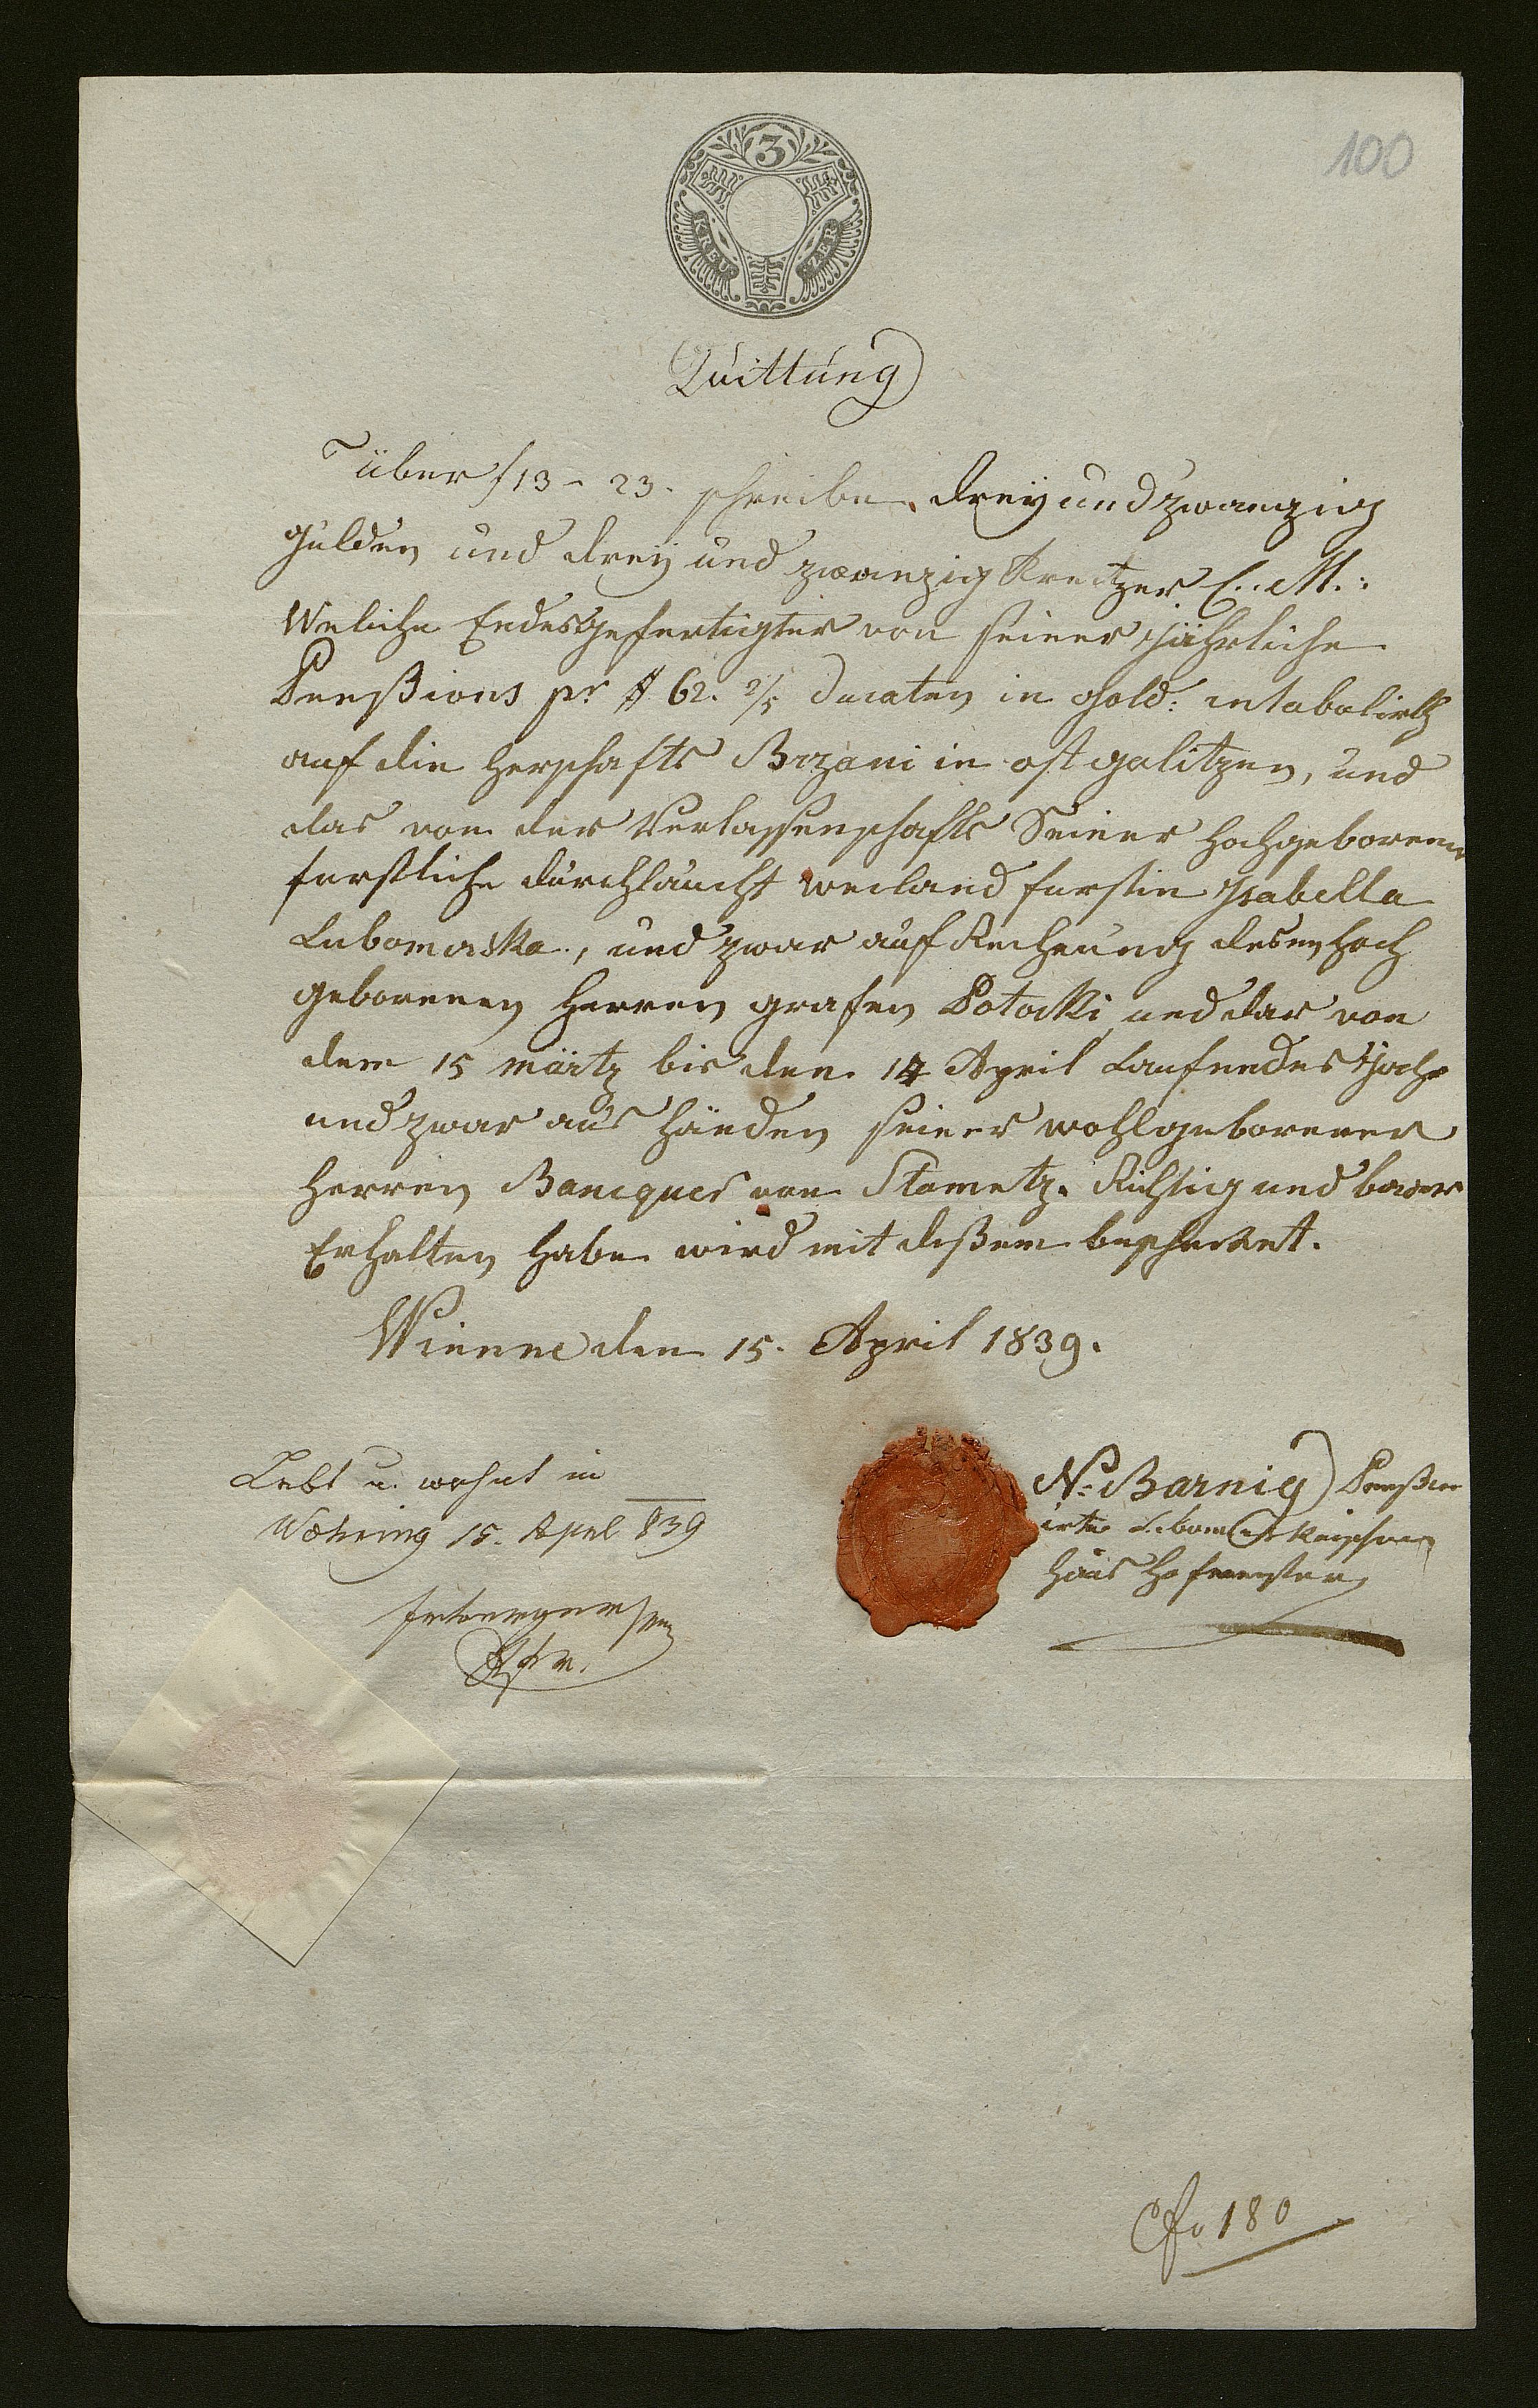 100
3
KREU ZER
Quittung
über f 13 - 23. schreibe dreyundzwanzig
gulden und dreÿ und zwanzig Kreitzer C. M.:
Weliche Endesgefertigter von seiner jährliche
Penßions pr # 62. 2/5 Ducaten in Gold: intabolirth
auf die Herschafts Brzani in ost galitzen, und
das von der Verlassenschafts Seiner Hochgeborenen
furstliche durchlaucht weiland furstin Isabella
Lubomirska, und zwar auf Rechnung desen Hoch
geborenen Herren grafen Potocki und das von
dem 15 märtz bis den 14 April Laufendes Jahr
und zwar aus Händen seiner wohlgeborener
Herren Bancques von Stametz. Richtig und baar
Erhalten habe wird mit dißem bescheinet.
Wienne den 15. April 1839.
Lebt u. wohnt in
Währing 15. Aprl 839
N. Barnig Penßion
irter Lubomirskischen
Haus Hofmeister
Fo 180